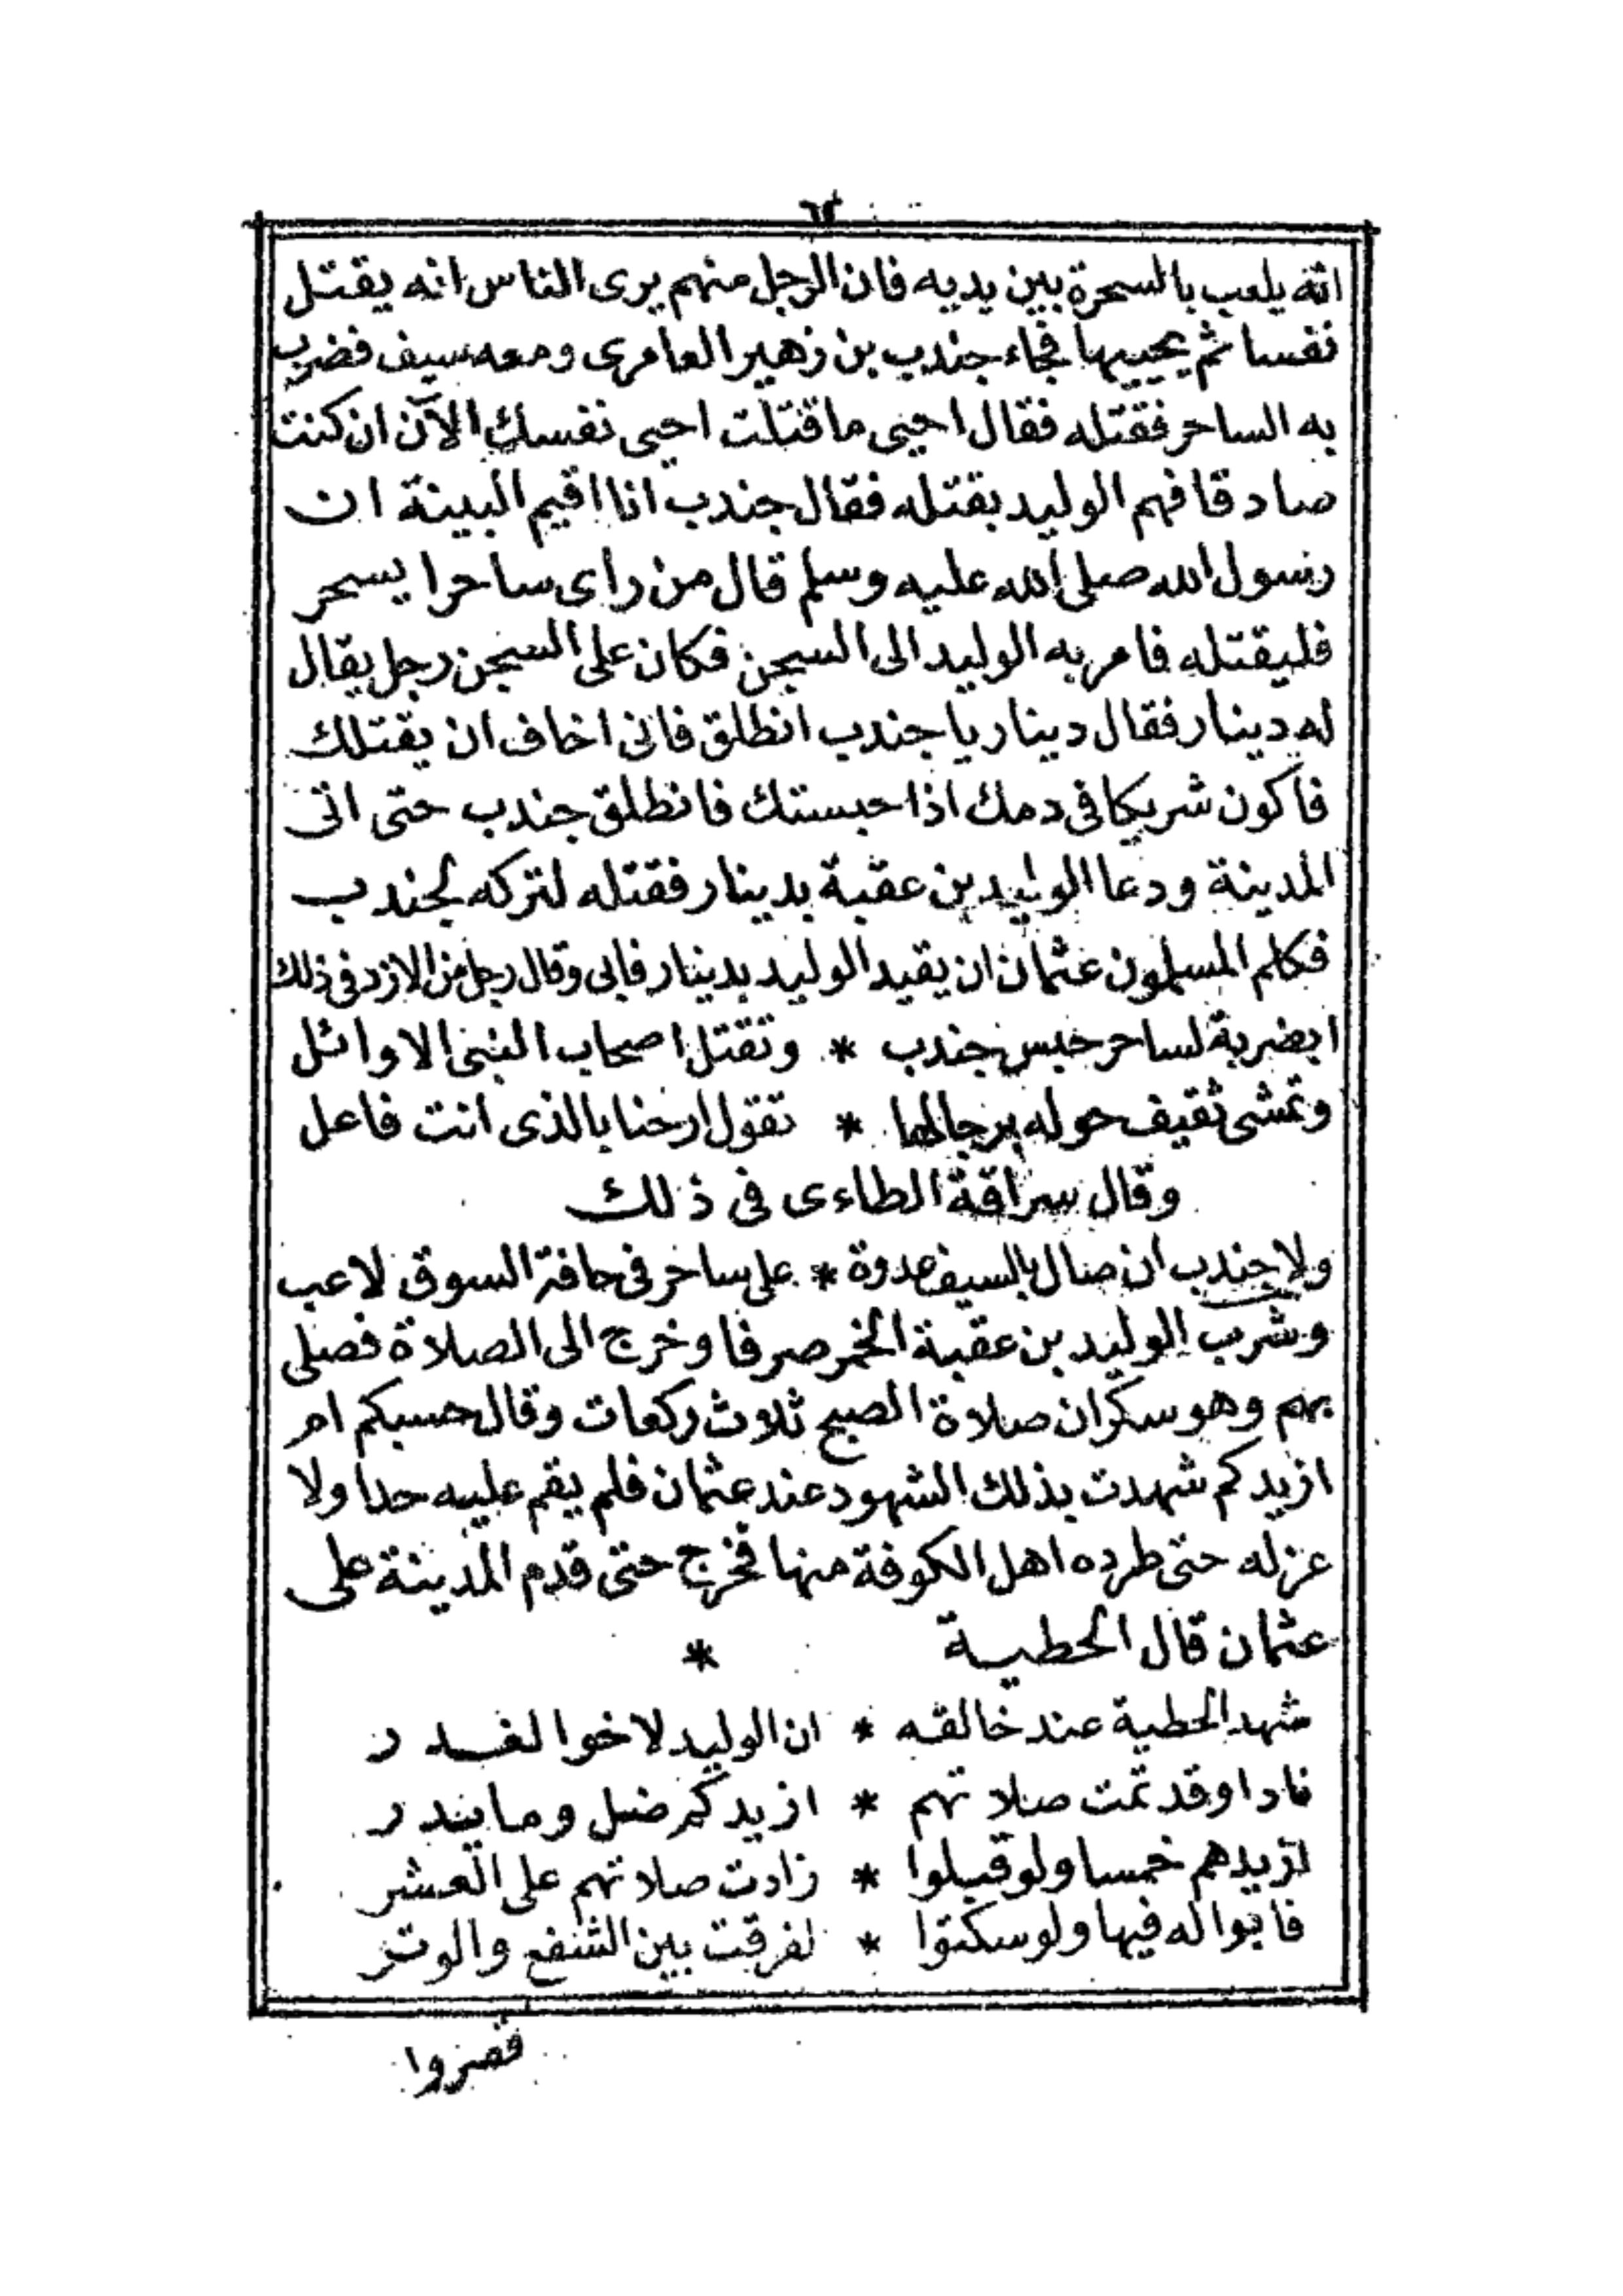 ٦٢
انه يلعب بالسحرة بين يديه فان الرجل منهم يرى الناس انه يقتل
نفسا ثم يحييها فجاء جندب بن زهير العامرى ومعه سيف فضرب
به الساحر فقتله فقال احيى ما قتلت احيى نفسك الآن ان كنت
صادقا فهم الوليد بقتله فقال جندب انا اقيم البينة ان
رسول الله صلى الله عليه وسلم قال من راى ساحرا يسحر
فليقتله فامر به الوليد الى السجن فكان على السجن رجل يقال
له دينار فقال دينار يا جندب انطلق فانى اخاف ان يقتلك
فاكون شريكا فى دمك اذا حبستك فانطلق جندب حتى اتى
المدينة ودعا الوليد بن عقبة بدينار فقتله لتركه لجندب
فكلم المسلمون عثمان ان يقيد الوليد بدينار فابى وقال رجل من الازد فى ذلك
ابضربة لساحر حبس جندب * وتقتل اصحاب النبى الاوائل
وتمشى ثقيف حوله برجالها * تقول ارحنا بالذى انت فاعل
وقال سراقة الطاءى فى ذلك
ولا جندب ان صال بالسيف عدوة * على ساحر فى حافة السوق لاعب
وشرب الوليد بن عقبة الخمر صرفا وخرج الى الصلاة فصلى
بهم وهو سكران صلاة الصبح ثلاث ركعات وقال حسبكم ام
ازيدكم شهدت بذلك الشهود عند عثمان فلم يقم عليه حدا ولا
عزله حتى طرده اهل الكوفة منها فخرج حتى قدم المدينة على
عثمان قال الحطيبة *
شهد الحطية عند خالقه * ان الوليد لاخوا لغدر
نادا وقد تمت صلاتهم * ازيدكم ضل وما يندر
لزيدهم خمسا ولو قبلوا * زادت صلاتهم على العشر
فابوا له فيها ولو سكتوا * لفرقت بين الشفع والوتر
فصروا